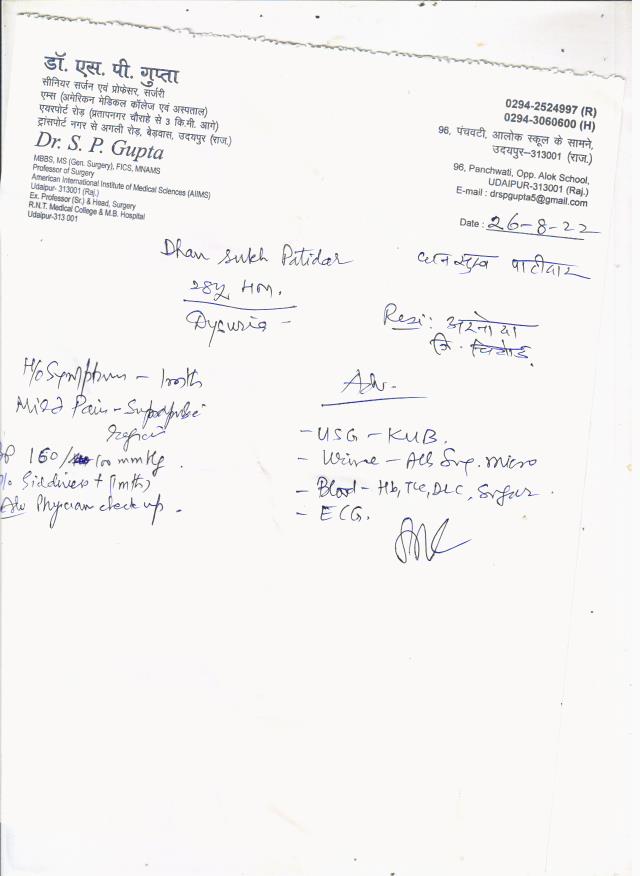 डॉ. एस. पी. गुप्ता
सीनियर सर्जन एवं प्रोफेसर, सर्जरी
एम्स (अमेरिकन मेडिकल कॉलेज एवं अस्पताल)
एयरपोर्ट रोड़ (प्रतापनगर चौराहे से 3 कि.मी. आगे)
ट्रांसपोर्ट नगर से अगली रोड़, बेड़वास, उदयपुर (राज.)
Dr. S. P. Gupta
MBBS, MS (Gen. Surgery), FICS, MNAMS
Professor of Surgery
American International Institute of Medical Sciences (AIIMS)
Udaipur- 313001 (Raj.)
Ex. Professor (Sr.) & Head, Surgery
R.N.T. Medical College & M.B. Hospital
Udaipur-313 001
0294-2524997 (R)
0294-3060600 (H)
96, पंचवटी, आलोक स्कूल के सामने,
उदयपुर–313001 (राज.)
96, Panchwati, Opp. Alok School,
UDAIPUR-313001 (Raj.)
E-mail : drspgupta5@gmail.com
Date : 26-8-22
Dhan sukh Patidar
धनसुख पाटीदार
28y HM.
Dycuria -
Resi : अरनोदा
जि.
H/o Symptum - 1 moth
Mild Pain - Suprapubic
Region
BP 160/100 mmHg
+ (1 mth)
Adv Physician check up .
Adv.
- USG - KUB.
- Urine - Alb Sug. micro
- Blood - Hb, TLC, DLC, Sugar .
- ECG.